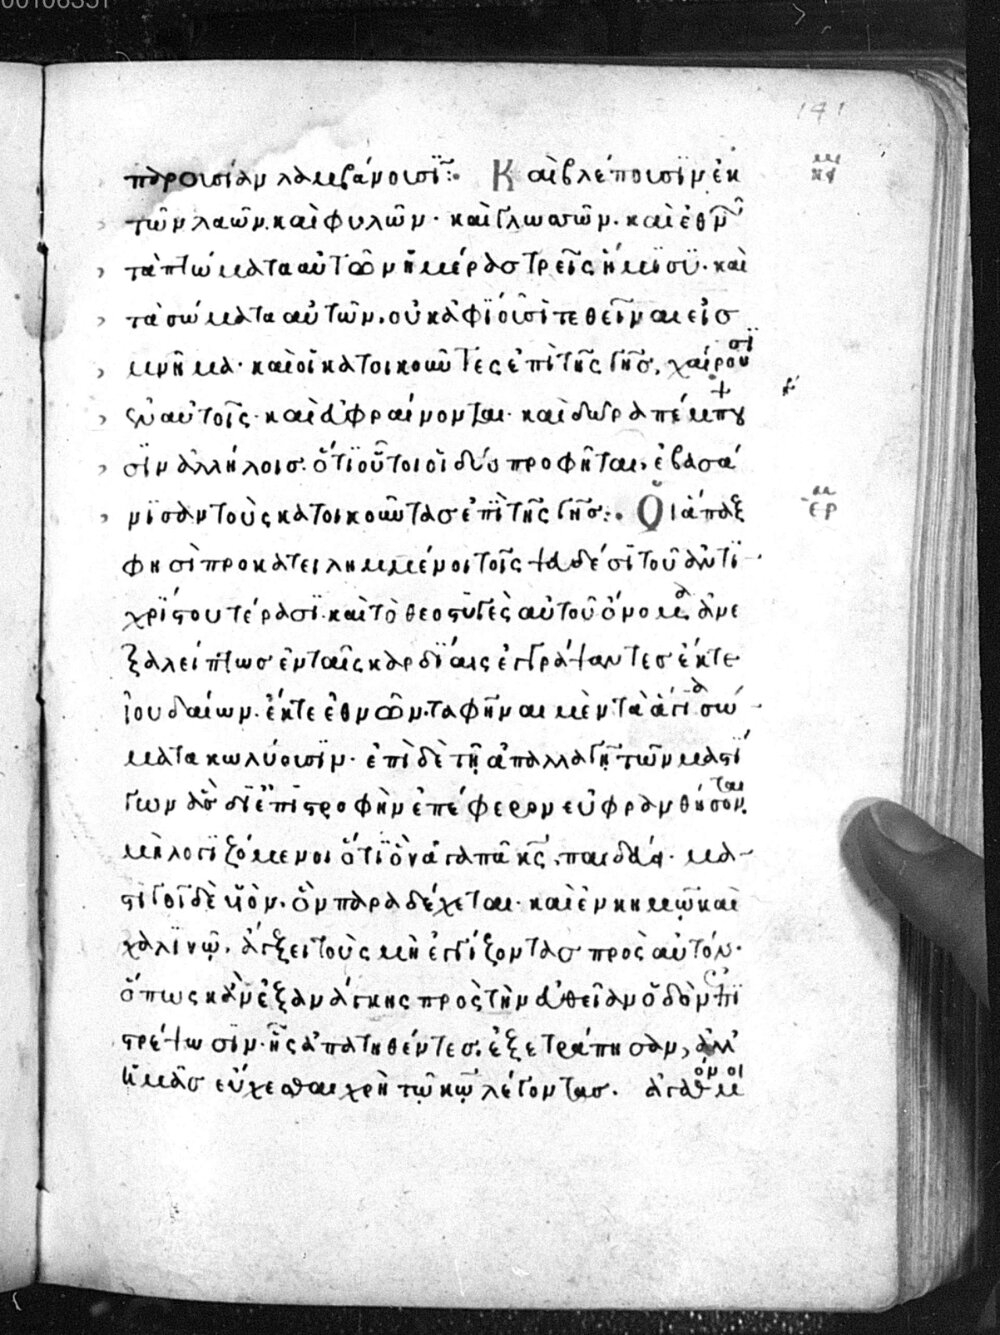 141
παρουσίαν λαμβάνουσϊ: Καὶ βλέπουσϊν ἐκ
τῶν λαῶν. καὶ φυλῶν· καὶ γλωσσῶν. καὶ ἐθνῶν
τὰ πτώματα αὐτῶν ἡμέρας τρεῖς ἥμϊσυ· καὶ
τὰ σώματα αὐτῶν. οὐκ ἀφϊοῦσϊ τεθεῖναι εἰσ
μνῆμα· καὶ οἱ κατοικοῦντες ἐπὶ τῆς γῆσ. χαίρουσϊ
ἐν αὐτοῖς· καὶ εὐφραίνονται· καὶ δῶρα πέμπου
σϊν ἀλλήλοισ. ὅτϊ οὗτοι οἱ δύο προφῆται. ἐβασά
νϊσαν τοὺς κατοικοῦντασ ἐπϊ τῆς γῆσ: Οἱ ἅπαξ
φησὶ προκατειλημμένοι τοῖς ψευδέσϊ τοῦ ἀντϊ
χρίστου τέρασϊ. καὶ τὸ θεοστυγὲς αὐτοῦ ὄνομα ἀνε
ξαλείπτωσ ἐν ταῖς καρδΐαις ἐγγράψαντεσ ἔκ τε
ϊουδαίων. ἔκ τε ἐθνῶν. ταφῆναι μὲν τὰ ἅγια σώ
ματα κωλύουσϊν· ἐπὶ δὲ τῇ ἀπαλλαγῇ τῶν μαστΐ
γων ἃσ δϊ ἐπιστροφὴν ἐπέφερον εὐφρανθήσονται.
μὴ λογϊζόμενοι ὅτϊ ὃν ἀγαπᾶ κς, παιδεύει· μα
στιγοῖ δὲ υἱὸν. ὃν παραδέχεται· καὶ ἐν κημῶ καὶ
χαλϊνῶ. ἄγξει τοὺς μὴ ἐγγίζοντασ πρὸς αὐτόν·
ὅπως κἂν ἐξ ἀνάγκης πρὸς τὴν εὐθεῖαν ὁδὸν ἐπϊ
στρέψωσϊν. ἧς ἀπατηθέντεσ. ἐξετράπησαν, ἀλλ
ἡμᾶσ εὔχεσθαι χρὴ τῶ κῶ λέγοντασ. ἀγαθόν μοι